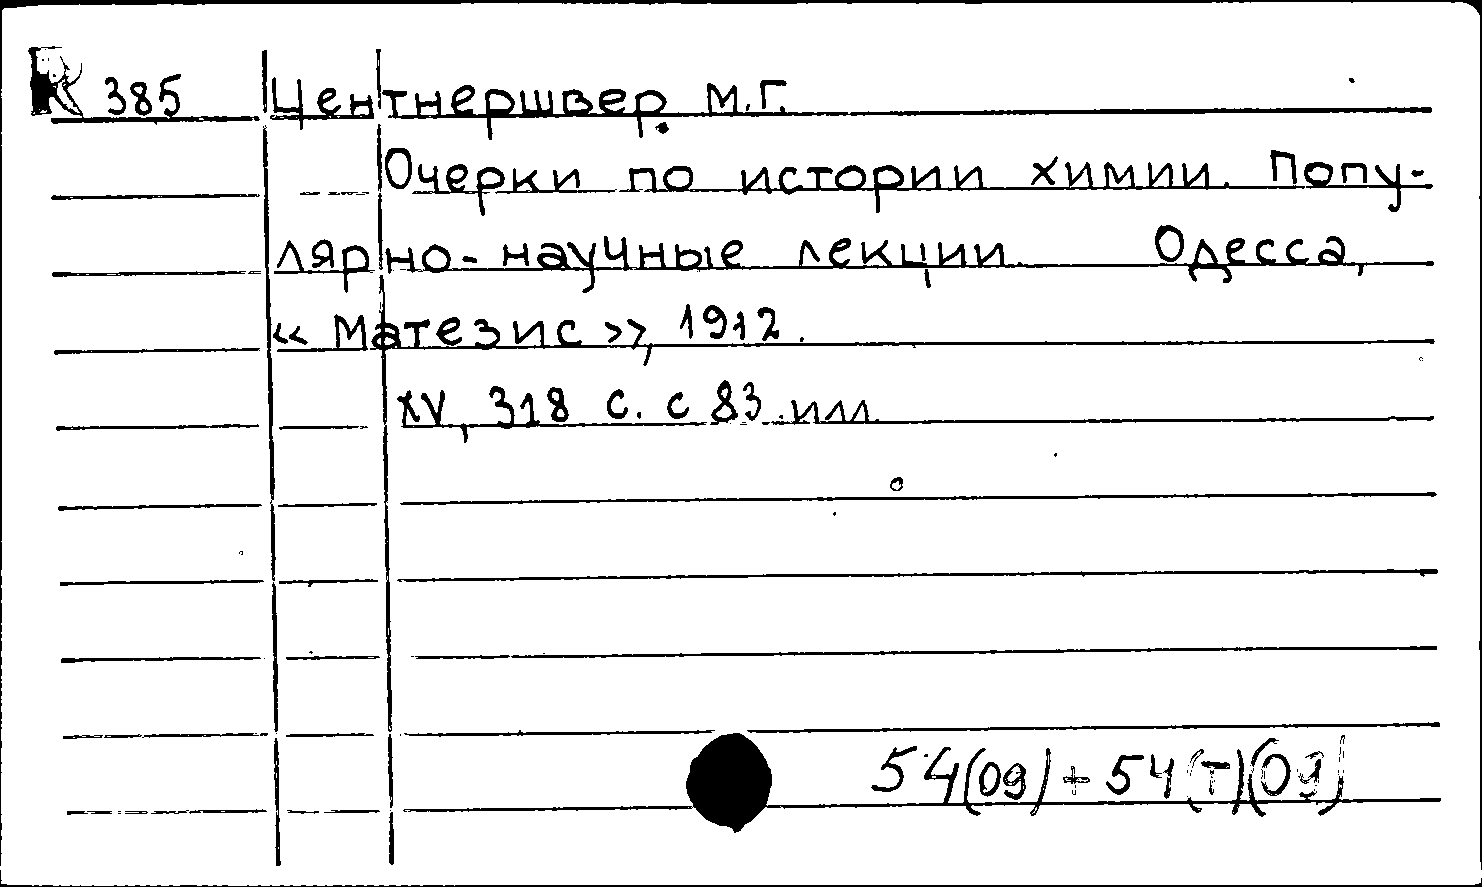 К 385 Центнершвер. М.Г.
Очерки по истории химии. Попу-
лярно-научные лекции. Одесса,
«Матезис», 1912.
XV, 318 с. с 83 илл.
54(09)+54(Т)(09)